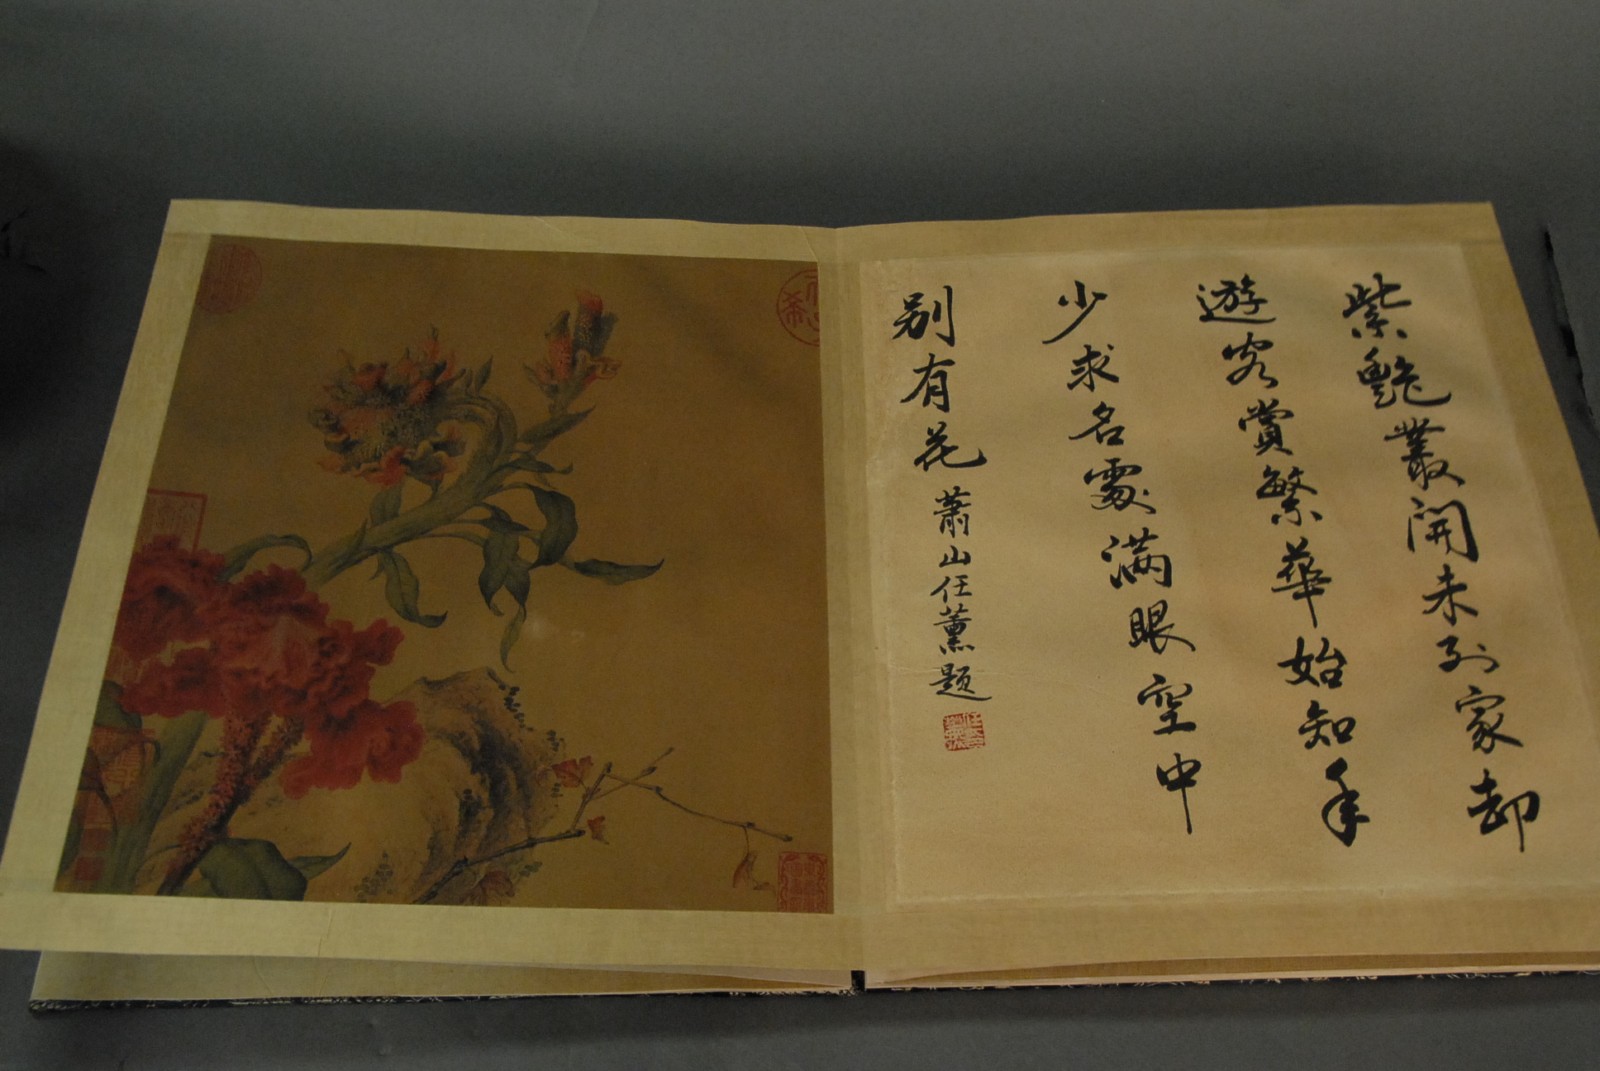 紫艷叢開未到家却
遊客賞繁華始知年
少求名處滿眼空中
别有花
蕭山任薰題